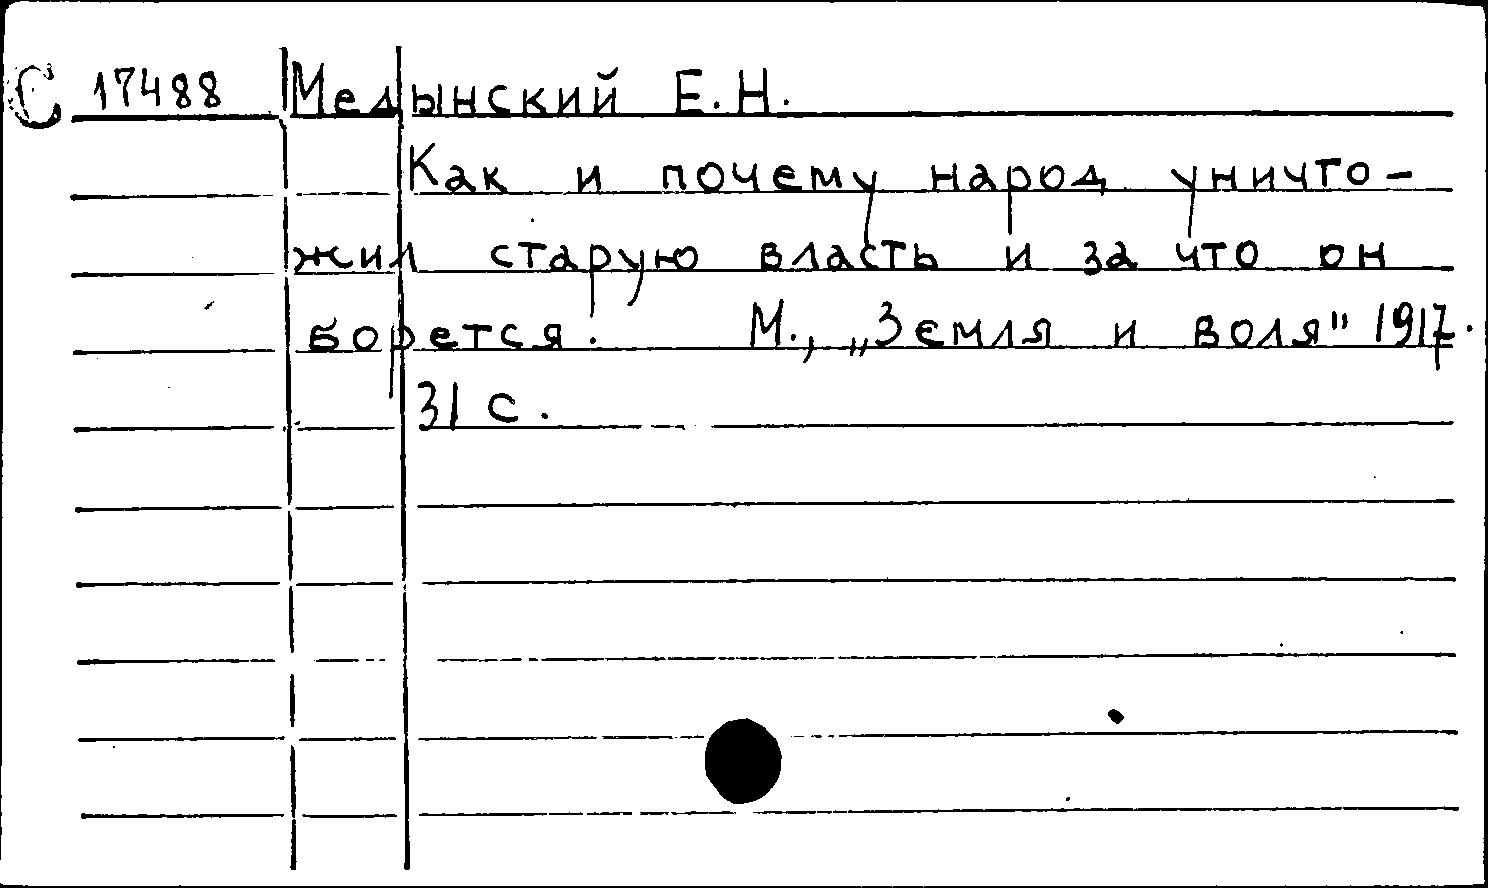 С 17488 Медынский Е.Н.
Как и почему народ уничто-
жил старую власть и за что он
борется. М., „Земля и воля" 1917.
31 с.